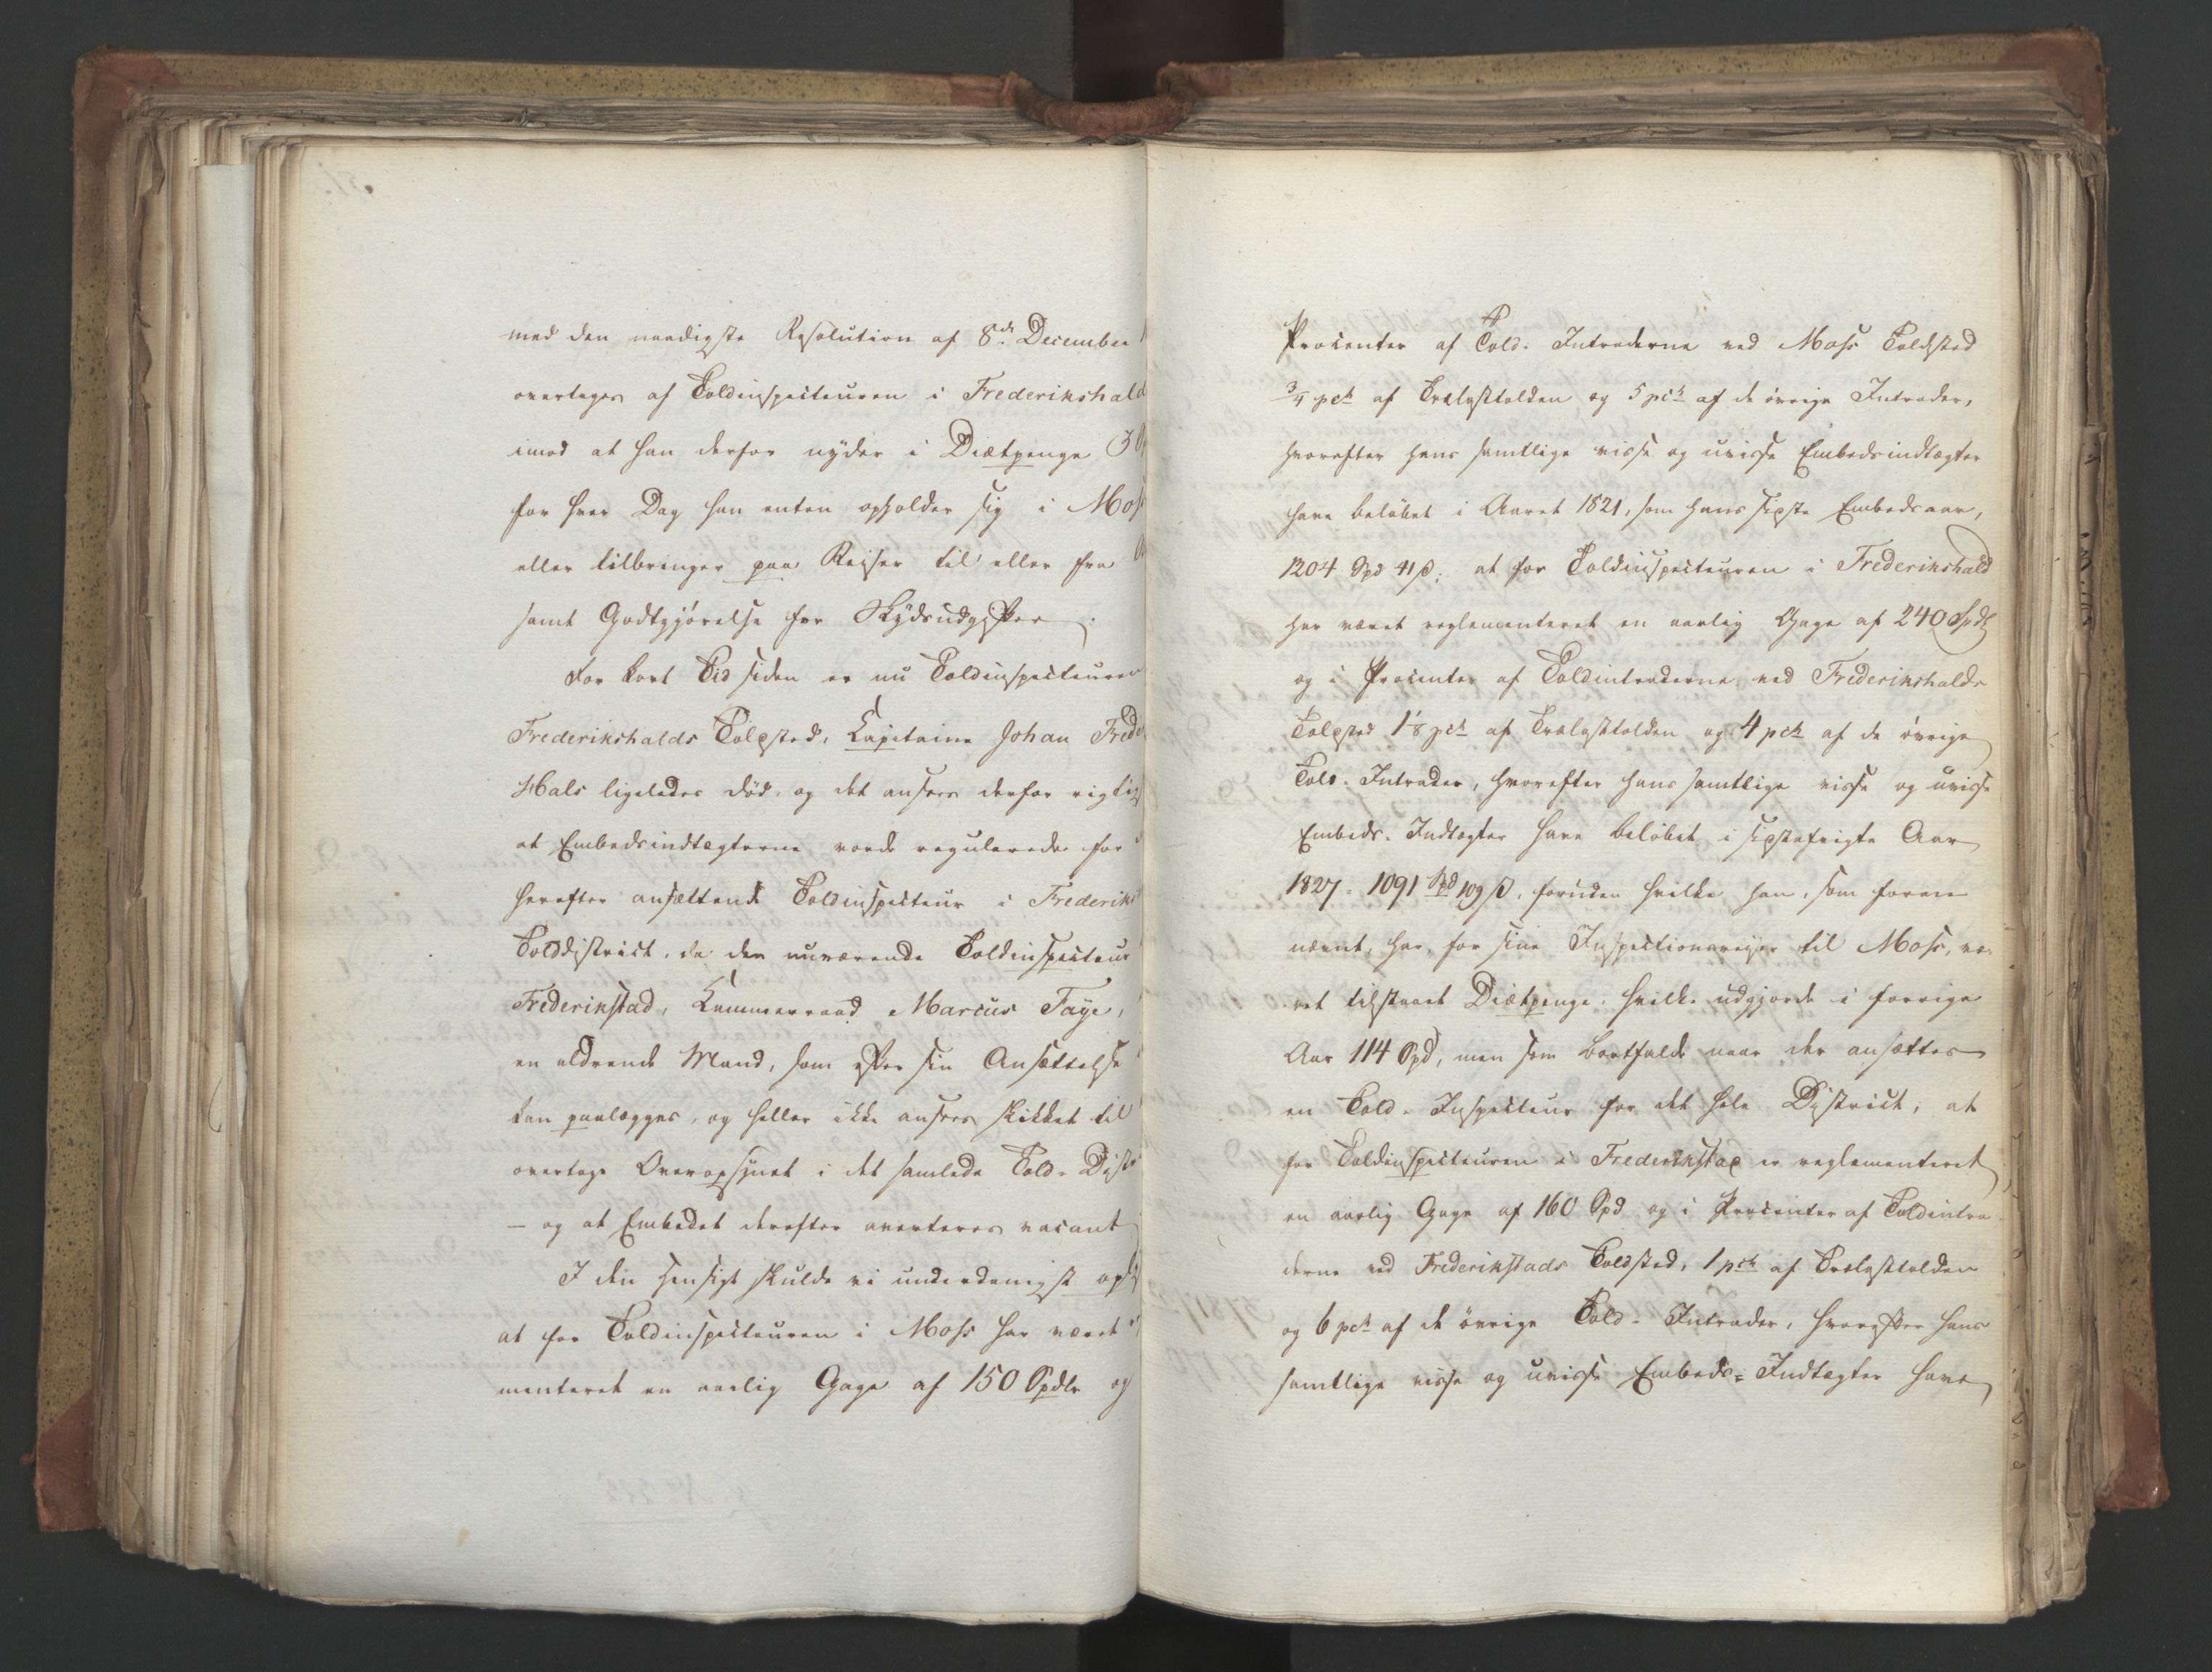 med den naadigste Resolution af 8de December
overtages af Toldinspecteuren i Frederikshald
imod at han derfor nyder i Diætpenge 30
for hver Dag han enten opholder sig i Moss
eller tilbringer paa Reiser til eller fra
samt Godtgjörelse for Skydsudgifter.
For kort Tid siden er nu Toldinspecteuren
Frederikshalds Toldsted, Kapitaine Johan Frede
Hals ligeledes död, og det ansees derfor rigtig
at Embedsindtægterne vorde regulerede for
herefter ansættende Toldinspecteur i Frederiks
Tolddistrict, da den nuværende Toldinspecteur
Frederikstad, Kammerraad Marcus Faye,
en aldrende Mand, som efter sin Ansættelse
kan paalægges, og heller ikke ansees skikket til
overtage Overopsynet i det samlede Told-Distr
- og at Embedet derefter averteres vacant
I den Hensigt skulde vi underdanigst opl
at for Toldinspecteuren i Moss har været
menteret en aarlig Gage af 150 Spdlr og
Procenter af Told-Intraderne ved Moss Toldsted
3/4 pct af Trælasttolden og 5 pct af de övrige Intrader,
hvorefter hans samtlige visse og uvisse Embedsindtægter
have belöbet i Aaret 1821, som hans sidste Embedsaar,
1204 Spd 41 ß; at for Toldinspecteuren i Frederikshald
har været reglementeret en aarlig Gage af 240 Spdl
og i Procenter af Toldintraderne ved Frederikshalds
Toldsted 1 1/8 pct af Trælasttolden og 4 pct af de övrige
Told-Intrader, hvorefter hans samtlige visse og uvisse
Embeds-Indtægter have belöbet i sidstafvigte Aar
1827 - 1091 Spd 109 ß, foruden hvilke han, som foran
nævnt, har, for sine Inspectionsreiser til Moss, væ-
ret tilstaaet Diætpenge, hvilke udgjorde i forrige
Aar 114 Spd, men som bortfalde naar der ansættes
en Told-Inspecteur for det hele District; at
for Toldinspecteuren i Frederikstad er reglementeret
en aarlig Gage af 160 Spd og i Procenter af Toldintra-
derne ved Frederikstads Toldsted, 1 pct af Trælasttolden
og 6 pct af de övrige Told-Intrader, hvorefter hans
samtlige visse og uvisse Embeds-Indtægter have